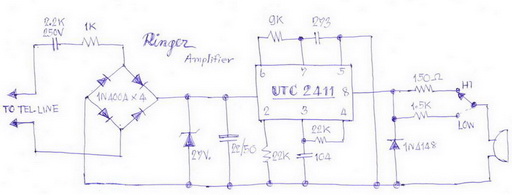 2.2K
250V
1K
Ringer
Amplifier
9K
273
6
7
5
UTC 2411
8
2
3
4
TO TEL-LINE
1N4004 x 4
27V.
22/50
22K
22K
104
150Ω
HI
1.5K
LOW
1N4148